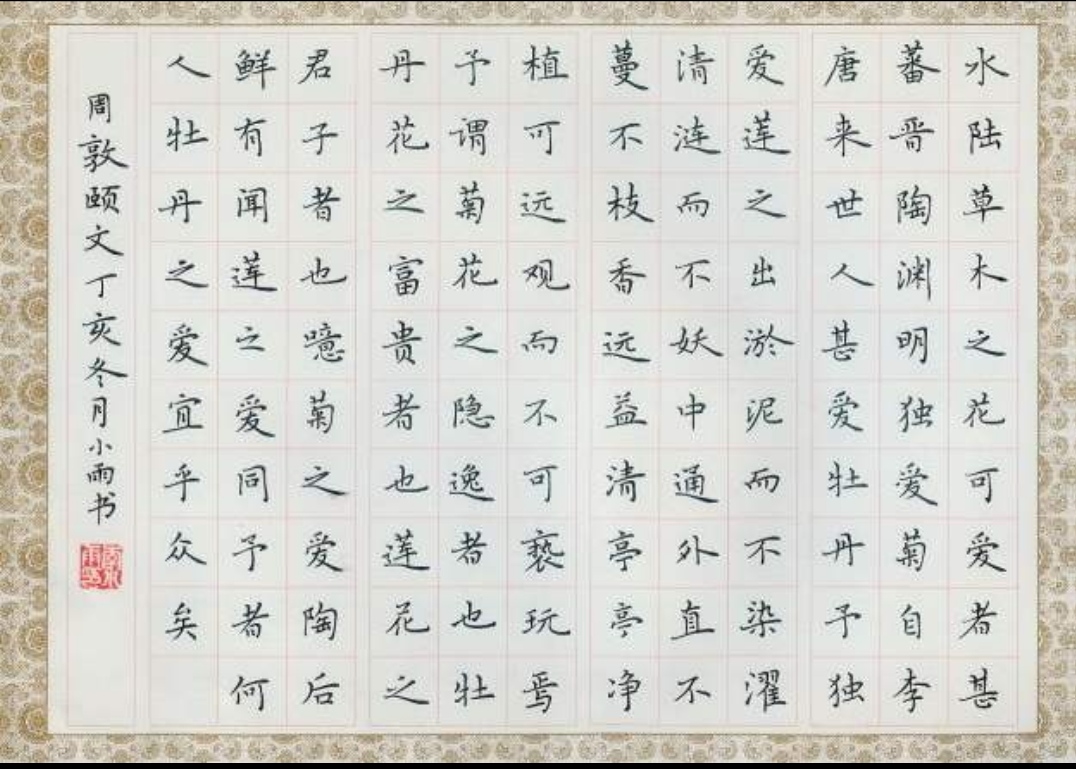 水陆草木之花可爱者甚
蕃晋陶渊明独爱菊自李
唐来世人甚爱牡丹予独
爱莲之出淤泥而不染濯
清涟而不妖中通外直不
蔓不枝香远益清亭亭净
植可远观而不可亵玩焉
予谓菊花之隐逸者也牡
丹花之富贵者也莲花之
君子者也噫菊之爱陶后
鲜有闻莲之爱同予者何
人牡丹之爱宜乎众矣
周敦颐文丁亥冬月小雨书